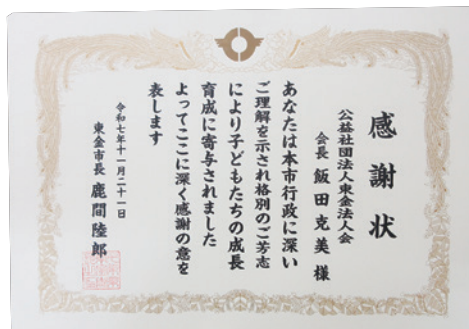 感謝状
公益社団法人東金法人会
会長 飯田克美様
あなたは本市行政に深い
ご理解を示され格別のご芳志
により子どもたちの成長
育成に寄与されました
よってここに深く感謝の意を
表します
令和七年十一月二十一日
東金市長 鹿間陸郎